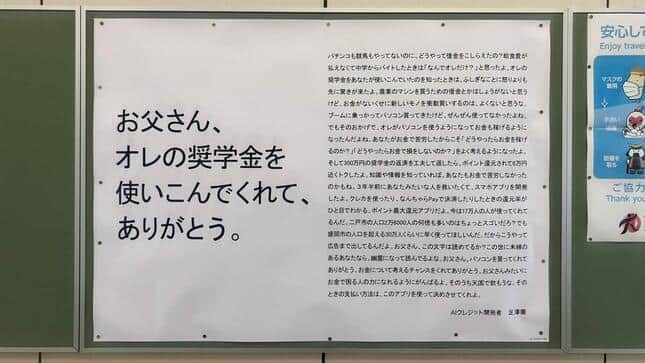 お父さん、
オレの奨学金を
使いこんでくれて、
ありがとう。
パチンコも競馬もやってないのに、どうやって借金をこしらえたの？給食費が
払えなくて中学からバイトしたときは「なんでオレだけ？」と思ったよ。オレの
奨学金をあなたが使いこんでいたのを知ったときは、ふしぎなことに怒りよりも
先に驚きが来たよ。農業のマシンを買うための借金とかはしょうがないと思う
けど、お金がないくせに新しいモノを衝動買いするのは、よくないと思うな。
ブームに乗っかってパソコン買ってきたけど、ぜんぜん使ってなかったよね。
でもそのおかげで、オレがパソコンを使うようになってお金も稼げるように
なったんだよね。あなたがお金で苦労したからこそ「どうやったらお金を稼げ
るのか？」「どうやったらお金で損をしないのか？」をよく考えるようになったよ。
そして300万円の奨学金の返済を工夫して返したら、ポイント還元されて6万円
近くトクしたよ。知識や情報を知っていれば、あなたもお金で苦労しなかった
のかもね。3年半前にあなたみたいな人を救いたくて、スマホアプリを開発
したよ。クレカを使ったり、なんちゃらPayで決済したりしたときの還元率が
ひと目でわかる、ポイント最大還元アプリだよ。今は17万人の人が使ってくれ
てるんだ。二戸市の人口2万6000人の何倍も多いのはちょっとスゴいだろ？でも
盛岡市の人口を超える30万人くらいに早く使ってほしいんだ。だからこうやって
広告まで出してるんだよ。お父さん、この文字は読めてるか？この世に未練の
あるあなたなら、幽霊になって読んでるよな。お父さん。パソコンを買ってくれて
ありがとう。お金について考えるチャンスをくれてありがとう。お父さんみたいに
お金で困る人の力になれるようにがんばるよ。そのうち天国で飲もうな。その
ときの支払い方法は、このアプリを使って決めさせてくれよ。
AIクレジット開発者
安心して
Enjoy travel
マスクの
着用
手洗い
ご協力
Thank you